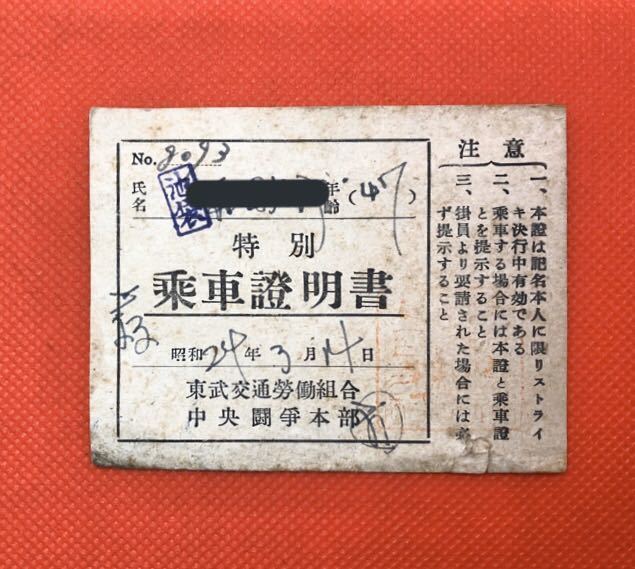 No. 8093
氏名
年齢(47)
池袋
特別
乗車證明書
昭和24年3月14日
東武交通勞働組合
中央闘爭本部
注意
一、本證は記名本人に限リストライ
キ決行中有効である
二、乗車する場合には本證と乗車證
とを提示すること
三、掛員より要請された場合には必
ず提示すること